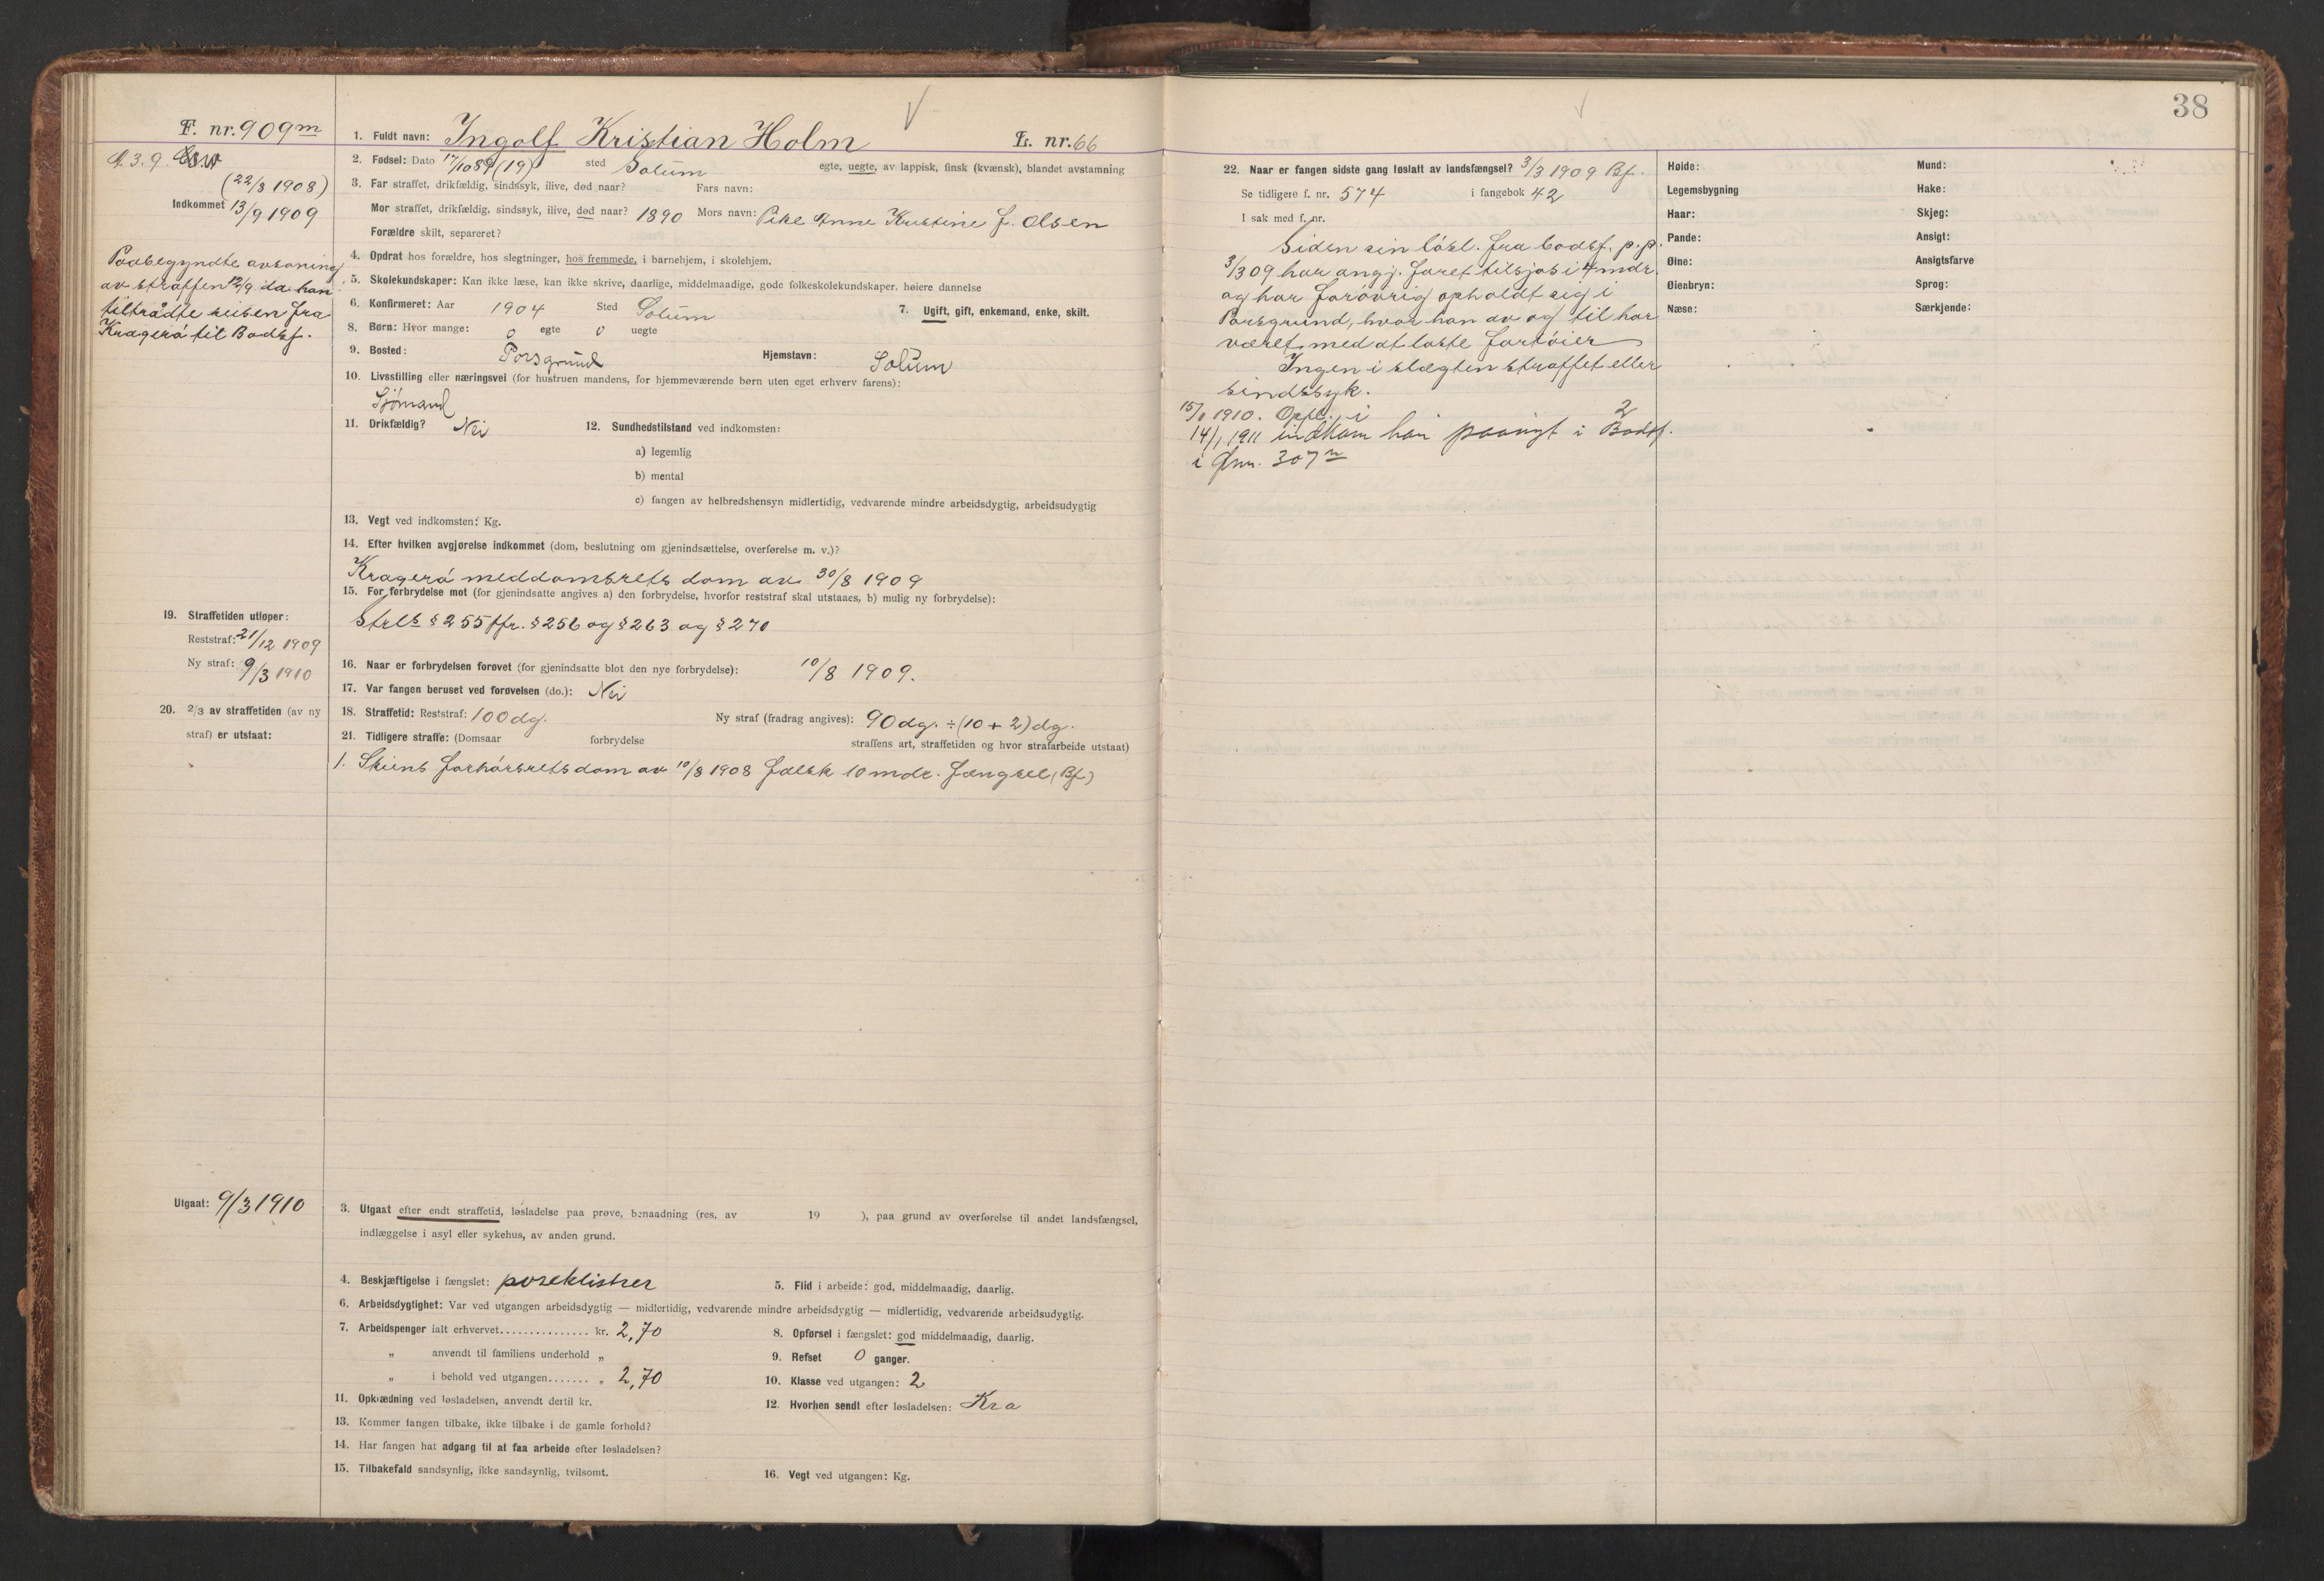 38
F. nr. 909m
A. 3. 9.
(22/8 1908)
Indkommet 13/9 1909
Paabegyndte avsoning
av straffen 12/9 da han
tiltrådte reisen fra
Kragerø til Bodsf.
1. Fuldt navn: Ingolf Kristian Holm L. nr. 66
2. Fødsel: Dato 17/10 89 (19) sted Solum egte, uegte, av lappisk, finsk (kvænsk), blandet avstamning
3. Far straffet, drikfældig, sindssyk, ilive, død naar? Fars navn:
Mor straffet, drikfældig, sindssyk, ilive, død naar? 1890 Mors navn: Pike Anne Kristine f. Olsen
Forældre skilt, separeret?
4. Opdrat hos forældre, hos slegtninger, hos fremmede, i barnehjem, i skolehjem.
5. Skolekundskaper: Kan ikke læse, kan ikke skrive, daarlige, middelmaadige, gode folkeskolekundskaper. høiere dannelse
6. Konfirmeret: Aar 1904 Sted Solum 7. Ugift, gift, enkemand, enke, skilt.
8. Børn: Hvor mange: 0 egte 0 uegte
9. Bosted: Porsgrund Hjemstavn: Solum
10. Livsstilling eller næringsvei (for hustruen mandens, for hjemmeværende børn uten eget erhverv farens):
Sjømand
11. Drikfældig? Nei 12. Sundhedstilstand ved indkomsten:
a) legemlig
b) mental
c) fangen av helbredshensyn midlertidig, vedvarende mindre arbeidsdygtig, arbeidsudygtig
13. Vegt ved indkomsten: Kg.
14. Efter hvilken avgjørelse indkommet (dom, beslutning om gjenindsættelse, overførelse m. v.)?
Kragerø meddomsrets dom av 30/8 1909
15. For forbrydelse mot (for gjenindsatte angives a) den forbrydelse, hvorfor reststraf skal utstaaes, b) mulig ny forbrydelse):
Strls § 255 jfr. § 256 og § 263 og § 270
16. Naar er forbrydelsen forøvet (for gjenindsatte blot den nye forbrydelse): 10/8 1909.
17. Var fangen beruset ved forøvelsen (do.): Nei
18. Straffetid: Reststraf: 100 dg. Ny straf (fradrag angives): 90 dg. ÷ (10 + 2) dg.
19. Straffetiden utløper:
Reststraf: 21/12 1909
Ny straf: 9/3 1910
20. 2/3 av straffetiden (av ny
straf) er utstaat:
21. Tidligere straffe: (Domsaar forbrydelse straffens art, straffetiden og hvor strafarbeide utstaat)
1. Skiens forhørsrets dom av 10/8 1908 falsk 10 mdr. fængsel (Bf)
Utgaat: 9/3 1910
3. Utgaat efter endt straffetid, løsladelse paa prøve, benaadning (res. av 19 ), paa grund av overførelse til andet landsfængsel,
indlæggelse i asyl eller sykehus, av anden grund.
4. Beskjæftigelse i fængslet: poseklistrer 5. Flid i arbeide: god, middelmaadig, daarlig.
6. Arbeidsdygtighet: Var ved utgangen arbeidsdygtig — midlertidig, vedvarende mindre arbeidsdygtig — midlertidig, vedvarende arbeidsudygtig.
7. Arbeidspenger ialt erhvervet............... kr. 2,70 8. Opførsel i fængslet: god middelmaadig, daarlig.
„ anvendt til familiens underhold „ 9. Refset 0 ganger.
„ i behold ved utgangen....... „ 2,70 10. Klasse ved utgangen: 2
11. Opklædning ved løsladelsen, anvendt dertil kr. 12. Hvorhen sendt efter løsladelsen: Kra
13. Kommer fangen tilbake, ikke tilbake i de gamle forhold?
14. Har fangen hat adgang til at faa arbeide efter løsladelsen?
15. Tilbakefald sandsynlig, ikke sandsynlig, tvilsomt. 16. Vegt ved utgangen: Kg.
22. Naar er fangen sidste gang løslatt av landsfængsel? 3/3 1909 Bf.
Se tidligere f. nr. 574 i fangebok 42
I sak med f. nr.
Siden sin løsl. fra bodsf. p.p.
3/3 09 har angj. faret tilsjøs i 4 mdr.
og har forøvrig opholdt sig i
Porsgrund, hvor han av og til har
været med at laste fartøier
Ingen i slægten straffet eller
sindssyk.
1910. Oppl. i 2
14/1 1911 indkom han paanyt i Bodsf.
i fnr. 307 n
Høide: Mund:
Legemsbygning Hake:
Haar: Skjeg:
Pande: Ansigt:
Øine: Ansigtsfarve
Øienbryn: Sprog:
Næse: Særkjende: